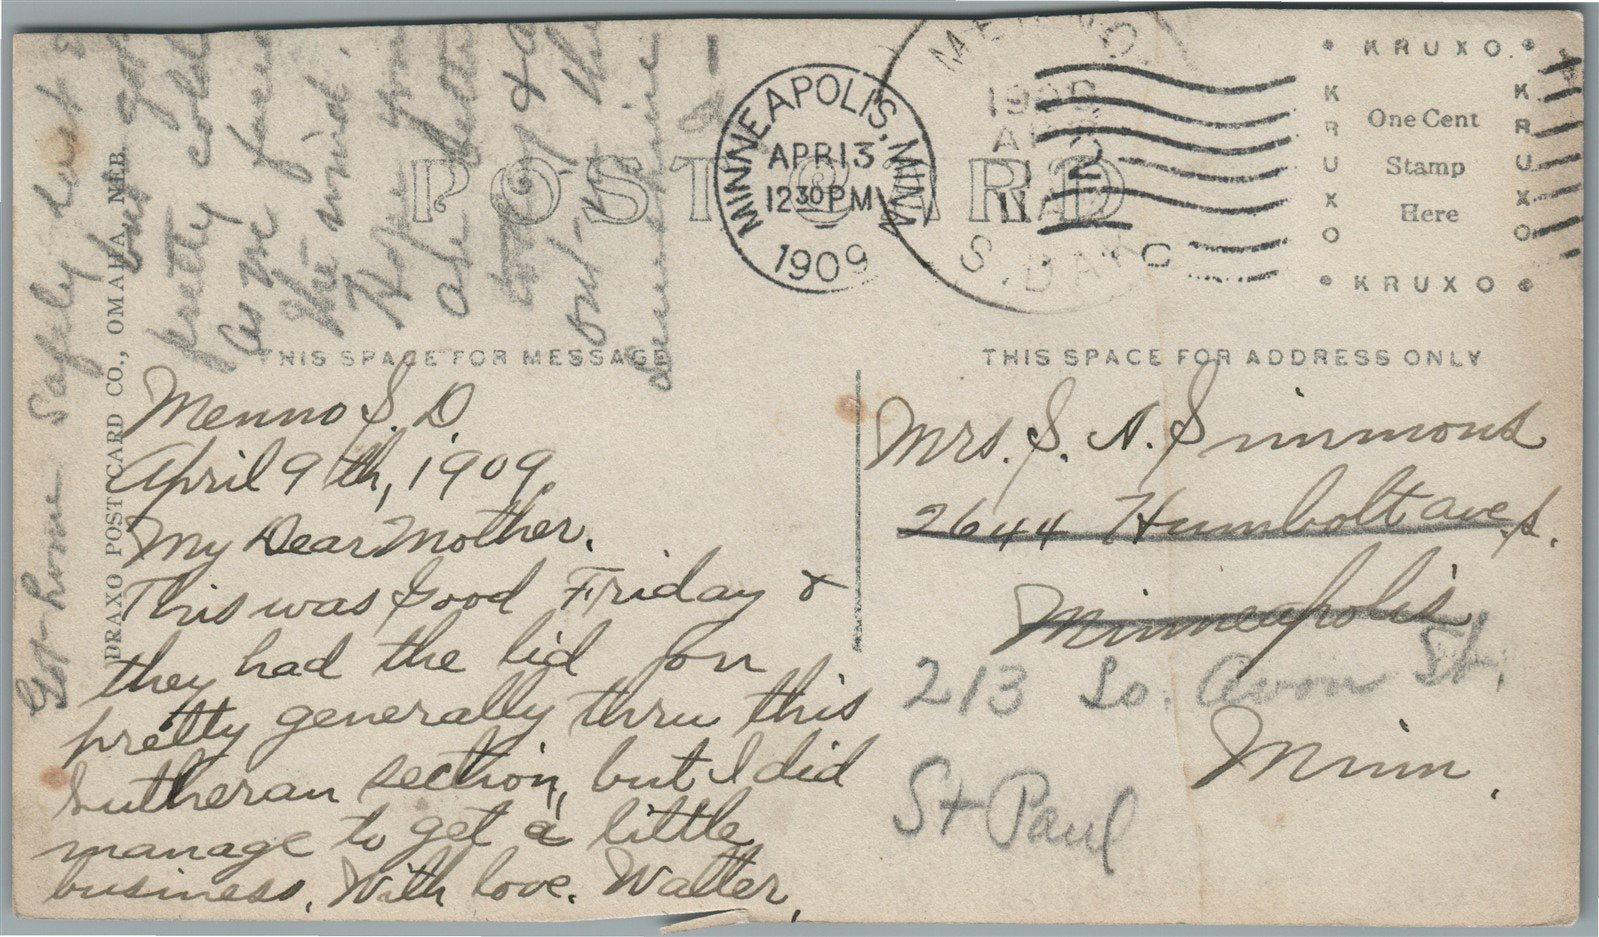 POST CARD
MINNEAPOLIS, MINN.
APR 13
12 30 PM
1909
S. DAK
KRUXO
KRUXO
KRUXO
KRUXO
One Cent
Stamp
Here
THIS SPACE FOR MESSAGE
THIS SPACE FOR ADDRESS ONLY
BRAXO POST CARD CO., OMAHA, NEB.
Menno S. D.
April 9th, 1909.
My Dear Mother.
This was Good Friday &
they had the lid on
pretty generally thru this
Lutheran section, but I did
manage to get a little
business. With love. Walter.
Mrs. S. A. Simmons
2644 Humbolt ave. s.
Minneapolis
213 So. Avon St.
Minn.
St Paul
Got home safely but
pretty cold
as we faced
the wind.
Hope you
are better
today &
out in the
sunshine